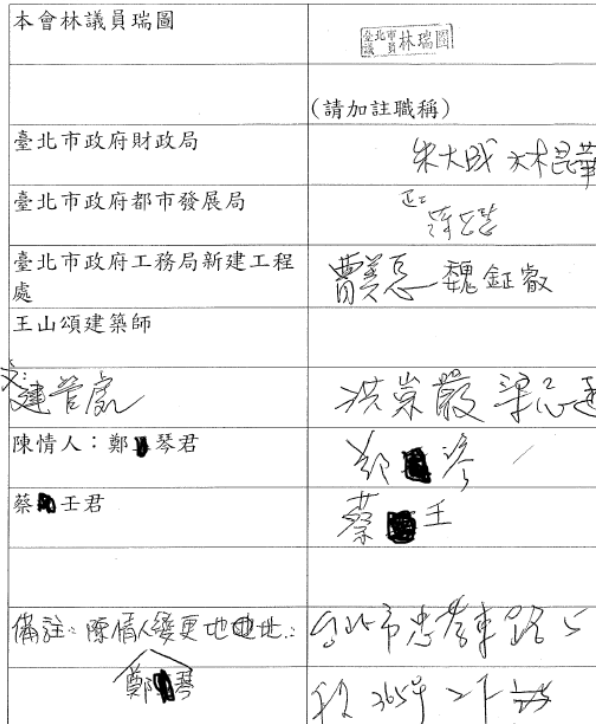 本會林議員瑞圖
臺北市議員 林瑞圖
(請加註職稱)
臺北市政府財政局
朱大成 林昆華
臺北市政府都市發展局
臺北市政府工務局新建工程
處
曹美忌 魏鉦叡
王山頌建築師
建管處
洪崇嚴 梁志遠
陳情人：鄭 琴君
鄭 琴
蔡 壬君
蔡 壬
備註：陳情人變更地址：
台北市忠孝東路5
鄭 琴
段 365號 2F